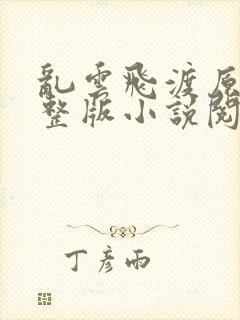 亂雲飛渡原
整版小說閱
丁彥雨